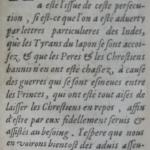 a esté l'issuë de ceste persecution,
si est-ce que l'on a esté aduerty
par lettres particulieres des Indes,
que les Tyrans du Iapon se sont accoisez,
& que les Peres & les Chrestiens
bannis n'en ont esté chassez, à cause
des guerres qui se sont esmeues entre
les Princes, qui ont esté tous aises de
laisser les Chrestiens en repos, affin
d'estre par eux fidellement seruis &
assistés au besoing. I'espere que nous
en voirons bientost des aduis